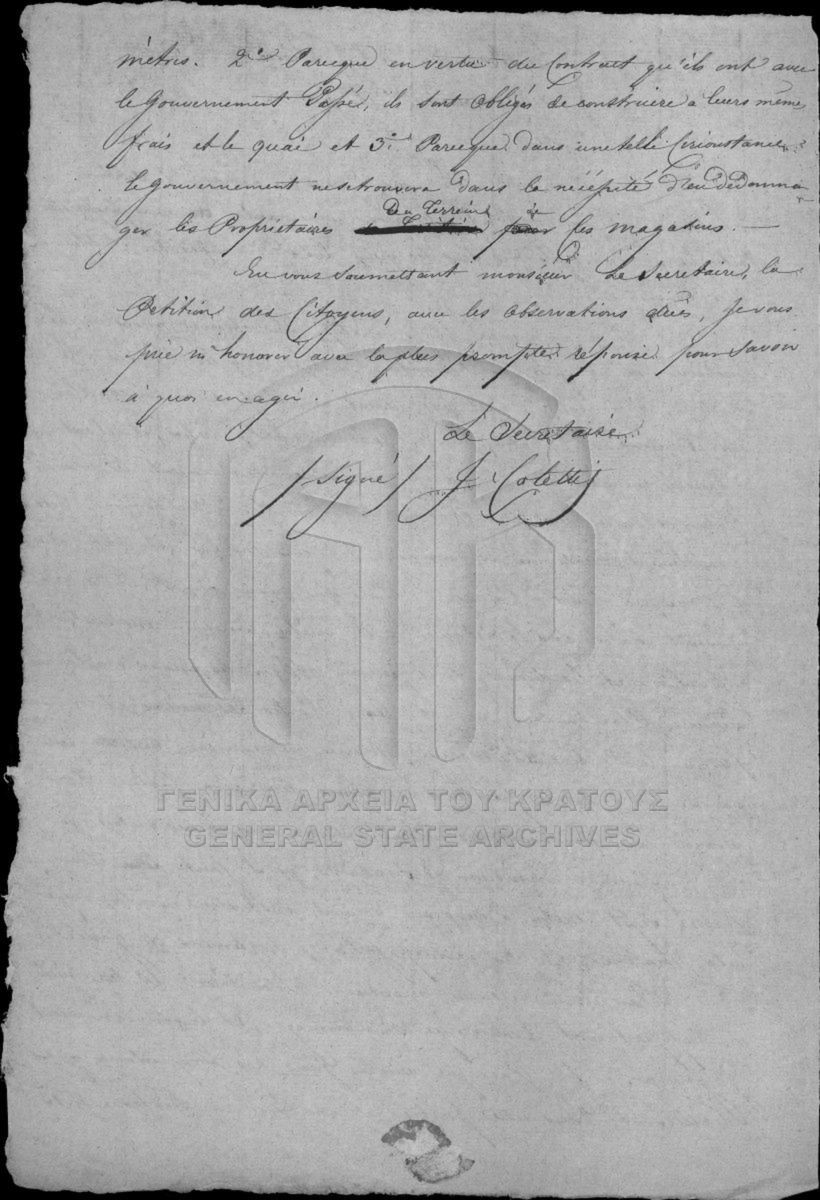 mètres. 2° Parceque en vertu du Contrait qu'ils ont avec
le Gouvernement Passé, ils sont obligés de construire a leurs même
frais et le quai et 3° Parceque dans une telle Circonstance
le Gouvernement ne se trouvera dans la nécéssité d'en dedomma-
Du Terrein de
ger les Propriétaires pour les magasins. —
En vous soumettant monsieur Le Secretaire, la
Petition des Citoyens, avec les observations dües, Je vous
prie m'honorer avec la plus prompte réponse pour savoir
à quoi en agir.
Le Secretaire
/signé/ J Coletti
ΓΕΝΙΚΑ ΑΡΧΕΙΑ ΤΟΥ ΚΡΑΤΟΥΣ
GENERAL STATE ARCHIVES